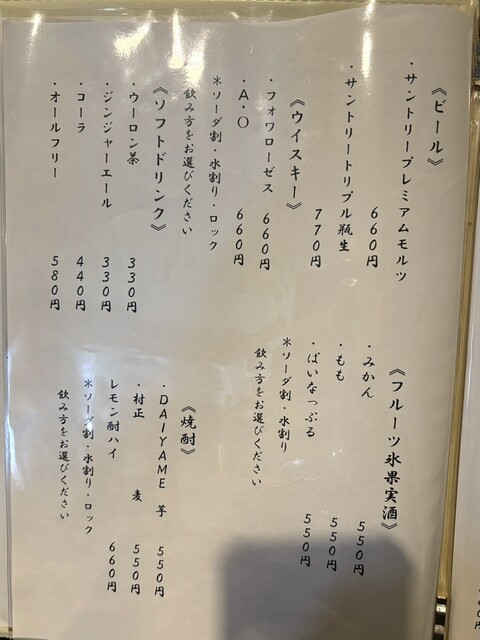 《ビール》
・サントリープレミアムモルツ
660円
・サントリートリプル瓶生
770円
《ウイスキー》
・フォワローゼス 660円
・A.O 660円
＊ソーダ割・水割り・ロック
飲み方をお選びください
《ソフトドリンク》
・ウーロン茶 330円
・ジンジャーエール 330円
・コーラ 440円
・オールフリー 580円
《フルーツ氷果実酒》
・みかん 550円
・もも 550円
・ぱいなっぷる 550円
＊ソーダ割・水割り
飲み方をお選びください
《焼酎》
・DAIYAME 芋 550円
・村正 麦 550円
レモン酎ハイ 660円
＊ソーダ割・水割り・ロック
飲み方をお選びください